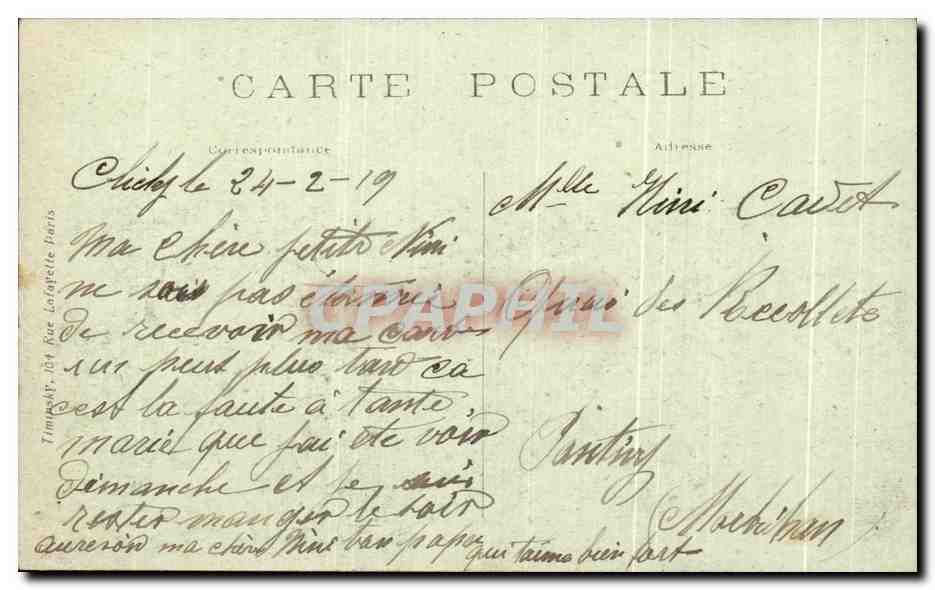 CARTE POSTALE
Correspondance
Adresse
Clichy le 24-2-19
Ma chère petite Nini
ne sois pas étonnée
de recevoir ma carte
un peut plus tard ca
cest la faute à tante
marie que jai ete voir
dimanche et je suis
rester manger le soir
aurevoir ma chère Nini ton papa
qui taime bien fort
Mlle Nini Cadet
Quai des Récollets
Pontivy
(Morbihan)
Timinsky, 101 Rue Lafayette Paris
CPAPHIL